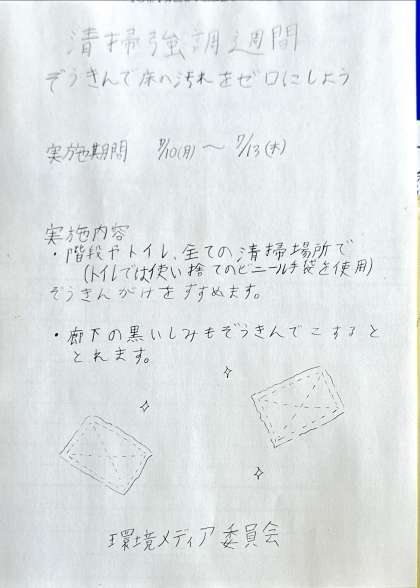 清掃強調週間
ぞうきんで床の汚れをゼロにしよう
実施期間 7/10(月)～7/13(木)
実施内容
・階段やトイレ、全ての清掃場所で
(トイレでは使い捨てのビニール手袋を使用)
ぞうきんがけをすすめます。
・廊下の黒いしみもぞうきんでこすると
とれます。
環境メディア委員会